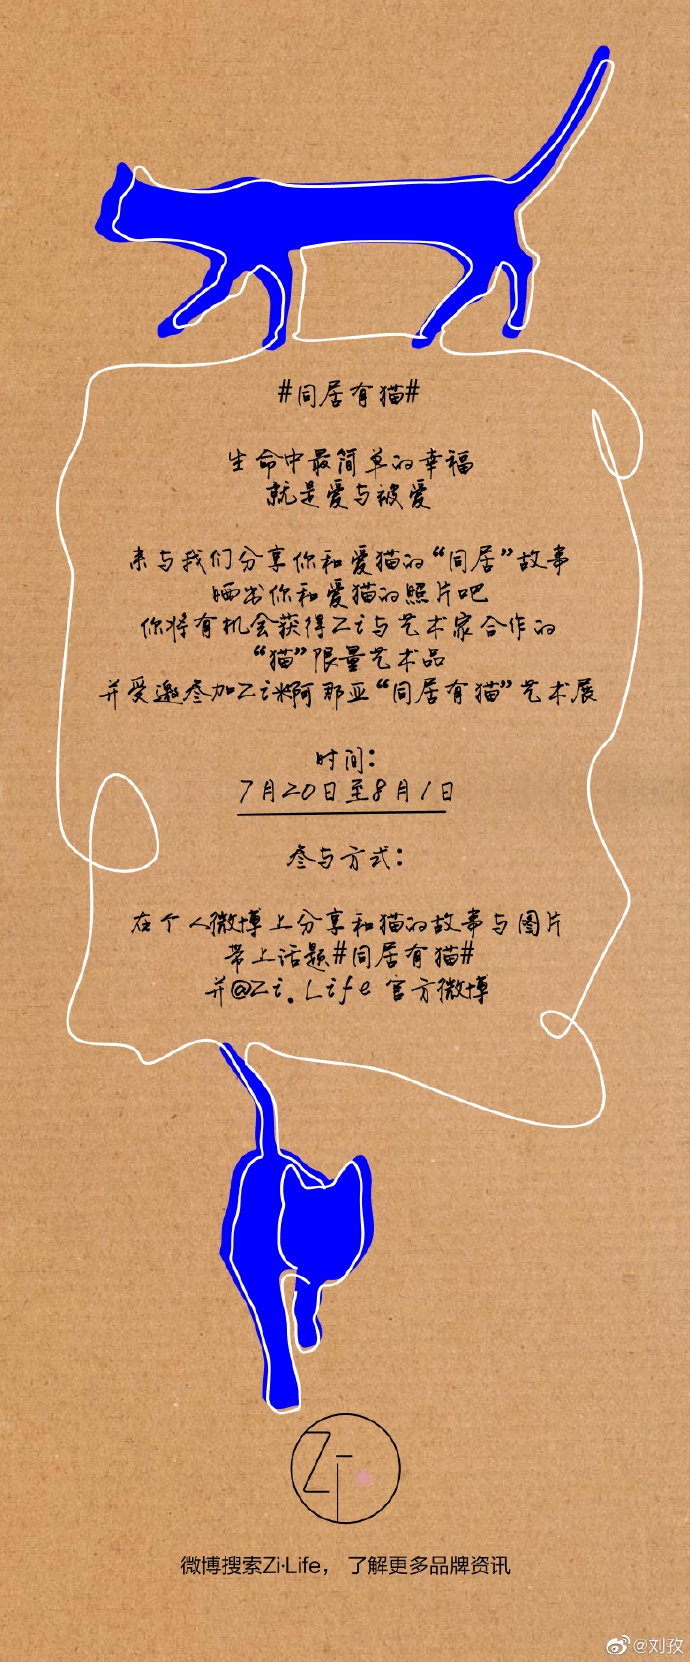 #同居有猫#
生命中最简单的幸福
就是爱与被爱
来与我们分享你和爱猫的“同居”故事
晒出你和爱猫的照片吧
你将有机会获得Zi与艺术家合作的
“猫”限量艺术品
并受邀参加Zi米阿那亚“同居有猫”艺术展
时间：
7月20日至8月1日
参与方式：
在个人微博上分享和猫的故事与图片
带上话题#同居有猫#
并@Zi.Life 官方微博
Zi
微博搜索Zi·Life， 了解更多品牌资讯
@刘孜